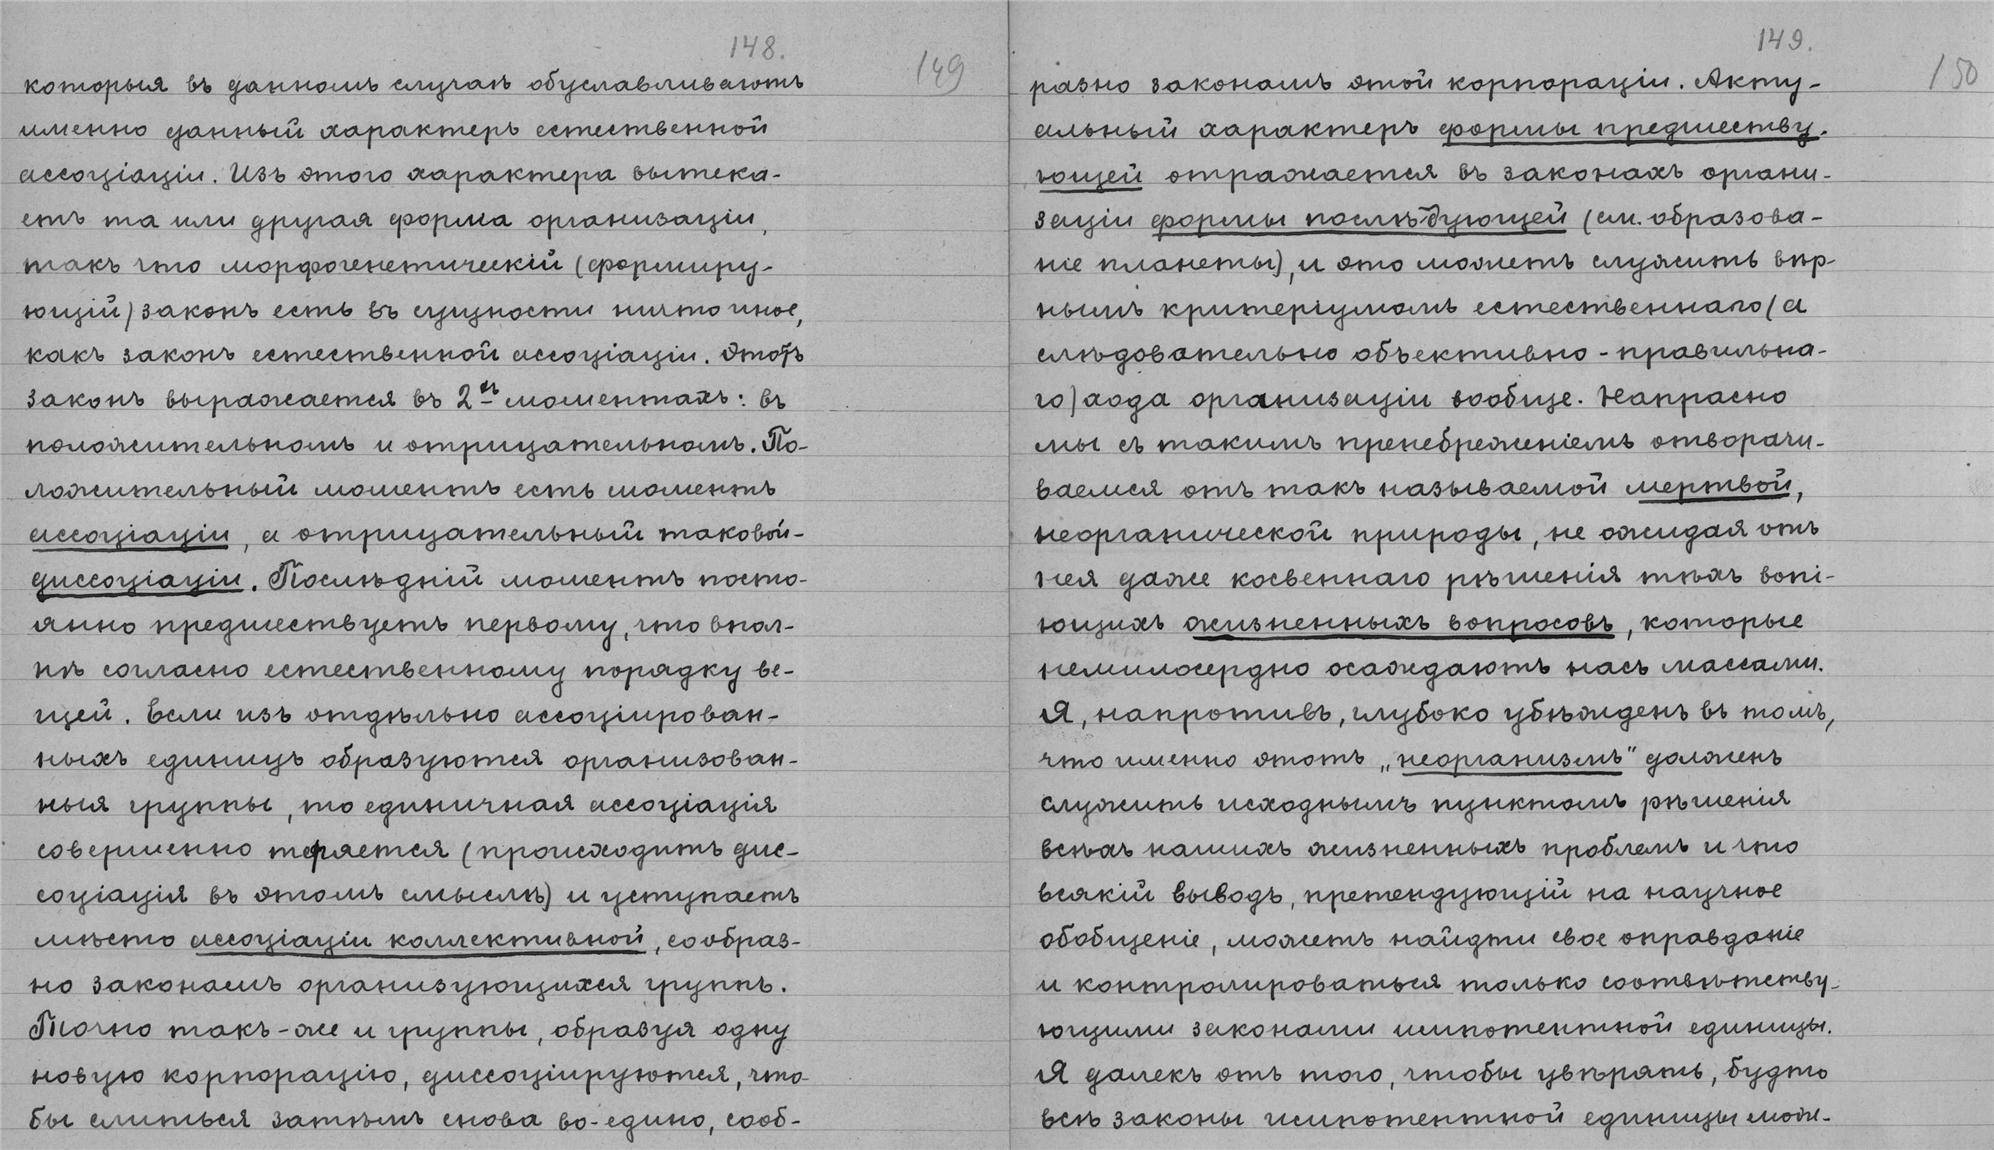 148.
149
которыя въ данномъ случаѣ обуславливаютъ
именно данный характеръ естественной
ассоціаціи. Изъ этого характера вытека-
етъ та или другая форма организаціи,
такъ что морфогенетическій (формиру-
ющій) законъ есть въ сущности ничто иное,
какъ законъ естественной ассоціаціи. Этотъ
законъ выражается въ 2хъ моментахъ: въ
положительномъ и отрицательномъ. По-
ложительный моментъ есть моментъ
ассоціаціи, а отрицательный таковой-
диссоціаціи. Послѣдній моментъ посто-
янно предшествуетъ первому, что впол-
нѣ согласно естественному порядку ве-
щей. Если изъ отдѣльно ассоціирован-
ныхъ единицъ образуются организован-
ныя группы, то единичная ассоціація
совершенно теряется (происходитъ дис-
соціація въ этомъ смыслѣ) и уступаетъ
мѣсто ассоціаціи коллективной, сообраз-
но законамъ организующихся группъ.
Точно такъ-же и группы, образуя одну
новую корпорацію, диссоціируются, что-
бы слиться затѣмъ снова во-едино, сооб-
149.
150
разно законамъ этой корпораціи. Акту-
альный характеръ формы предшеству-
ющей отражается въ законахъ органи-
заціи формы послѣдующей (см. образова-
ніе планеты), и это можетъ служить вѣр-
нымъ критеріумомъ естественнаго (а
слѣдовательно объективно-правильна-
го) хода организаціи вообще. Напрасно
мы съ такимъ пренебреженіемъ отворачи-
ваемся отъ такъ называемой мертвой,
неорганической природы, не ожидая отъ
нея даже косвеннаго рѣшенія тѣхъ вопі-
ющихъ жизненныхъ вопросовъ, которые
немилосердно осаждаютъ насъ массами.
Я, напротивъ, глубоко убѣжденъ въ томъ,
что именно этотъ „неорганизмъ" долженъ
служить исходнымъ пунктомъ рѣшенія
всѣхъ нашихъ жизненныхъ проблемъ и что
всякій выводъ, претендующій на научное
обобщеніе, можетъ найдти свое оправданіе
и контролироваться только соотвѣтству-
ющими законами импотентной единицы.
Я далекъ отъ того, чтобы увѣрять, будто
всѣ законы импотентной единицы мож-